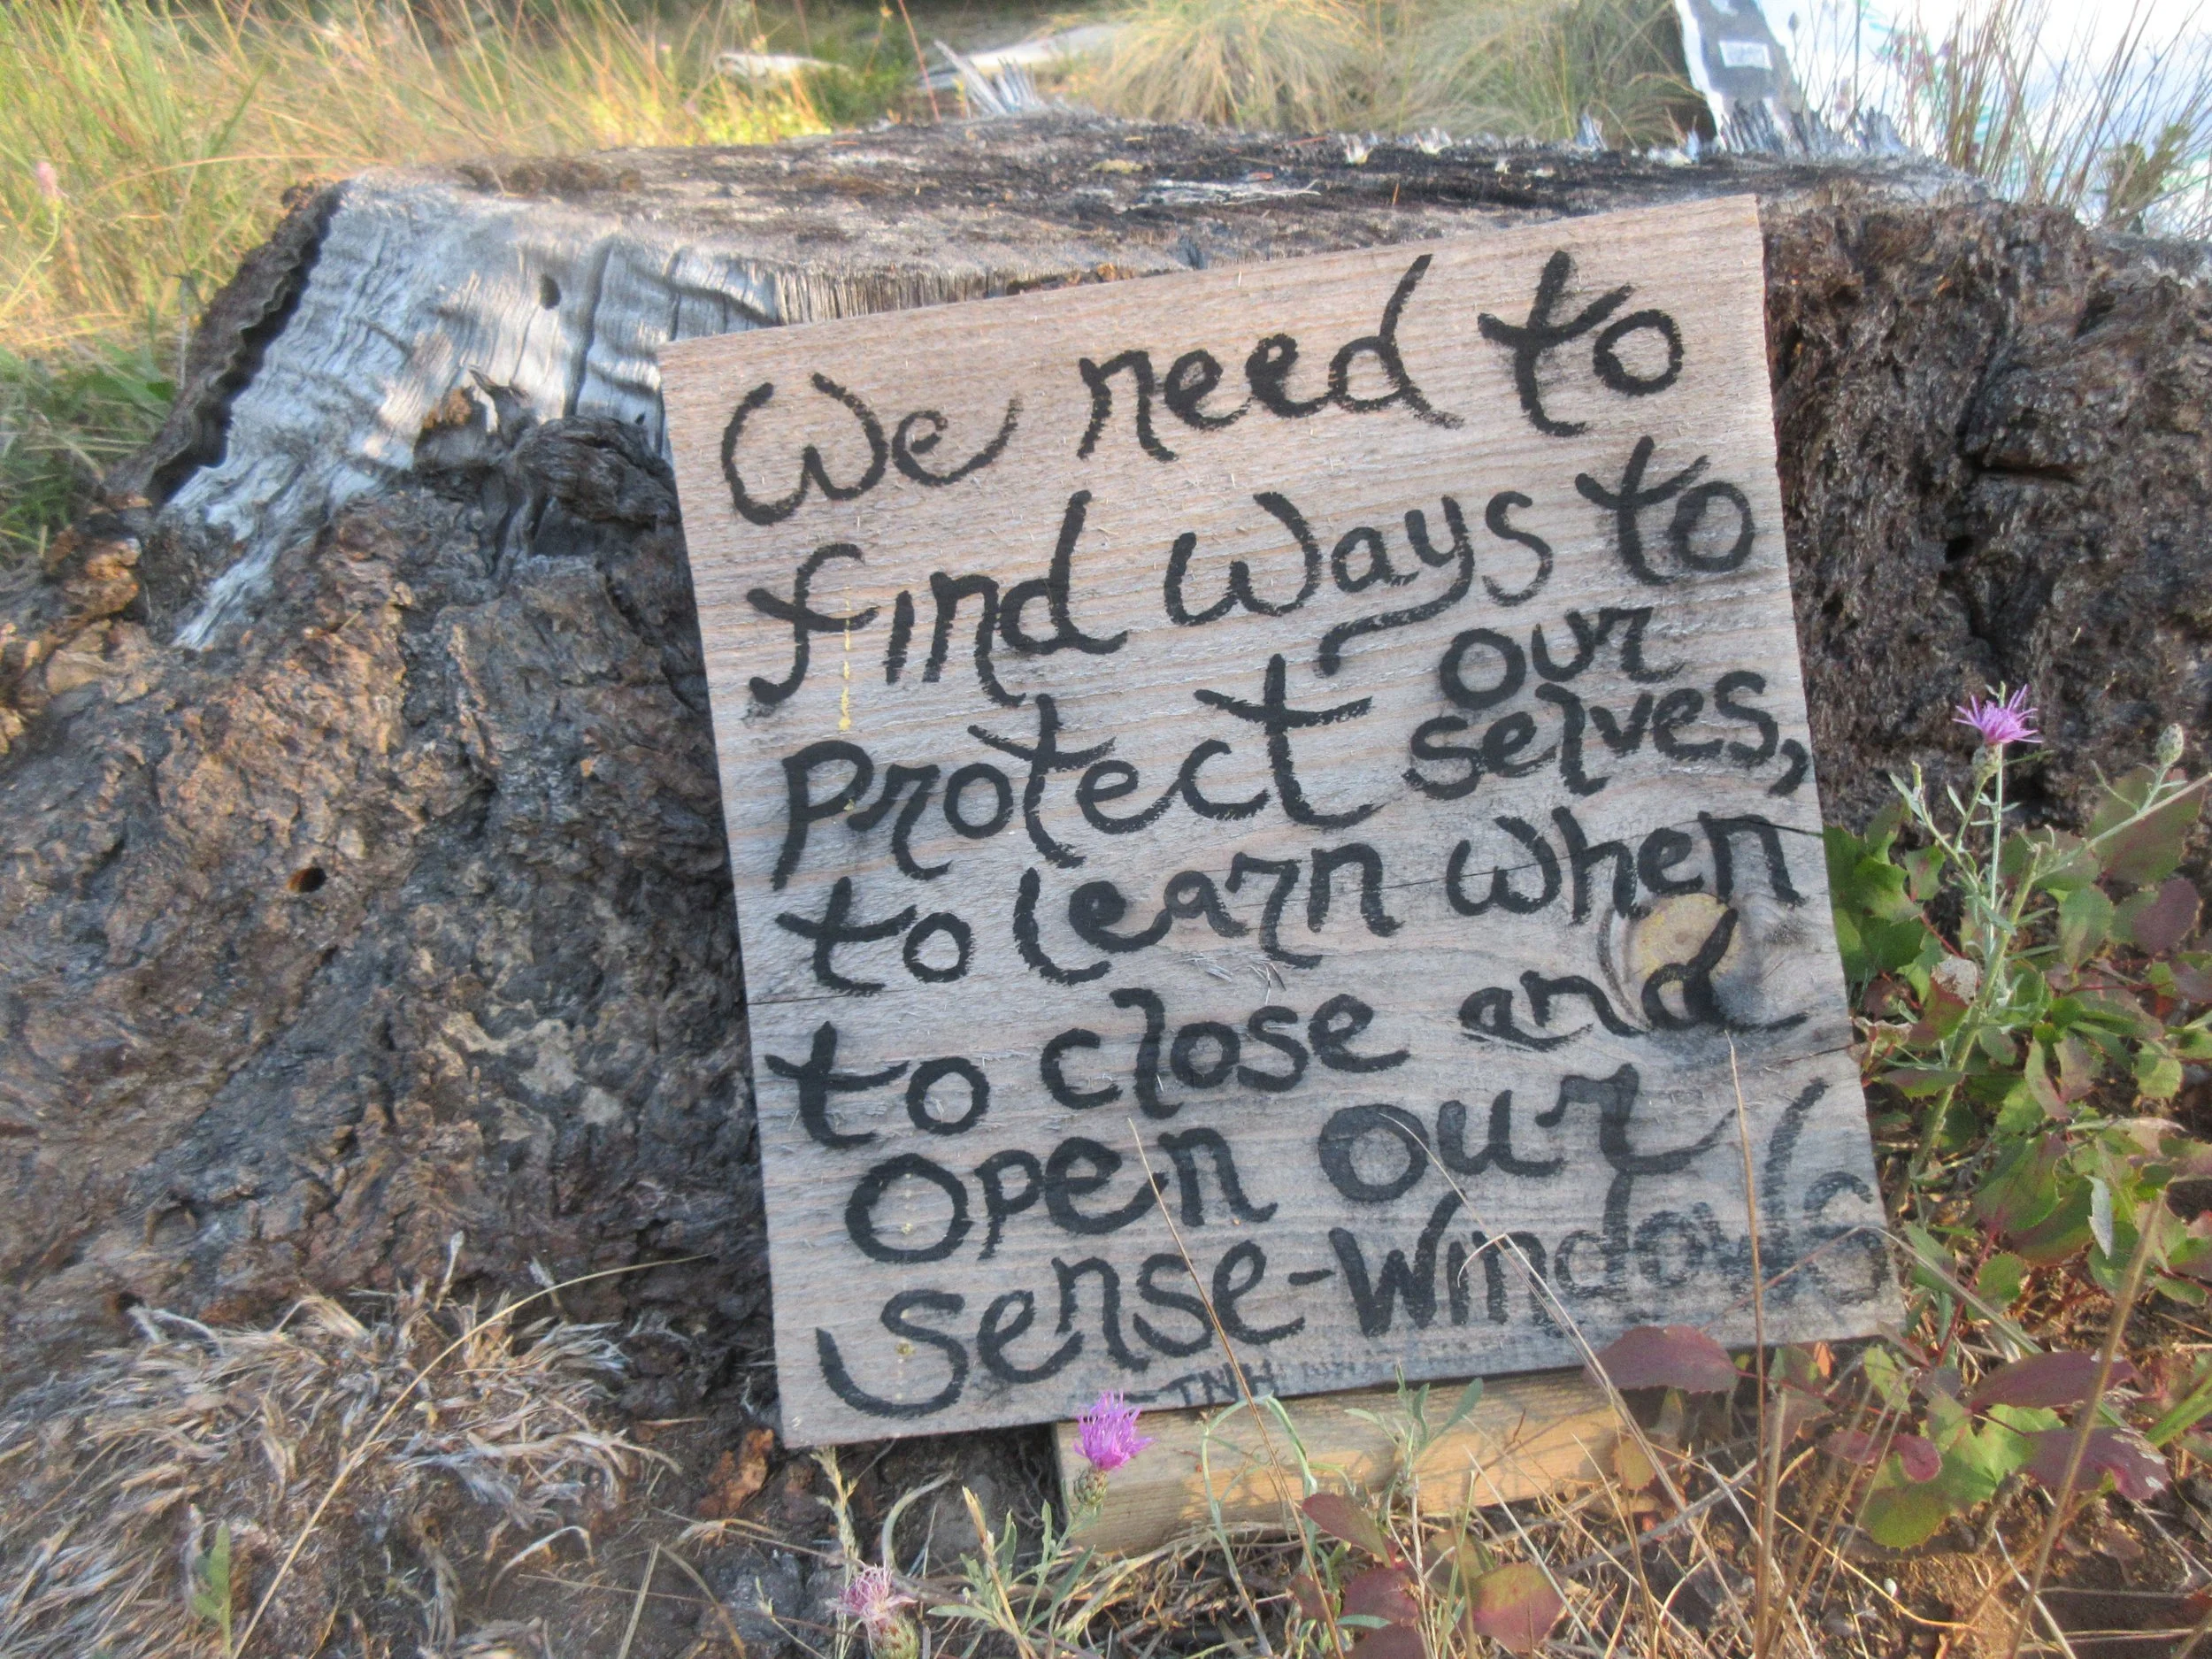 We need to
find ways to
protect our
selves,
to learn when
to close and
open our
sense-windows
-TNH